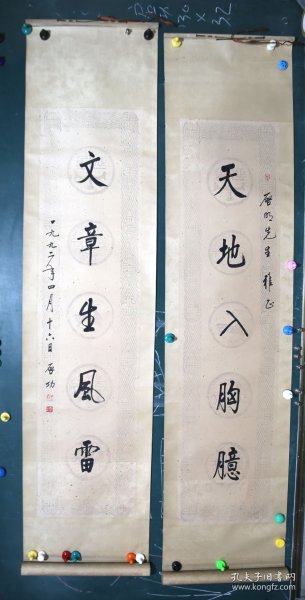 天地入胸臆
啓明先生 雅正
文章生風雷
一九九二年四月十六日 啓功
130×32
孔夫子旧书网
www.kongfz.com